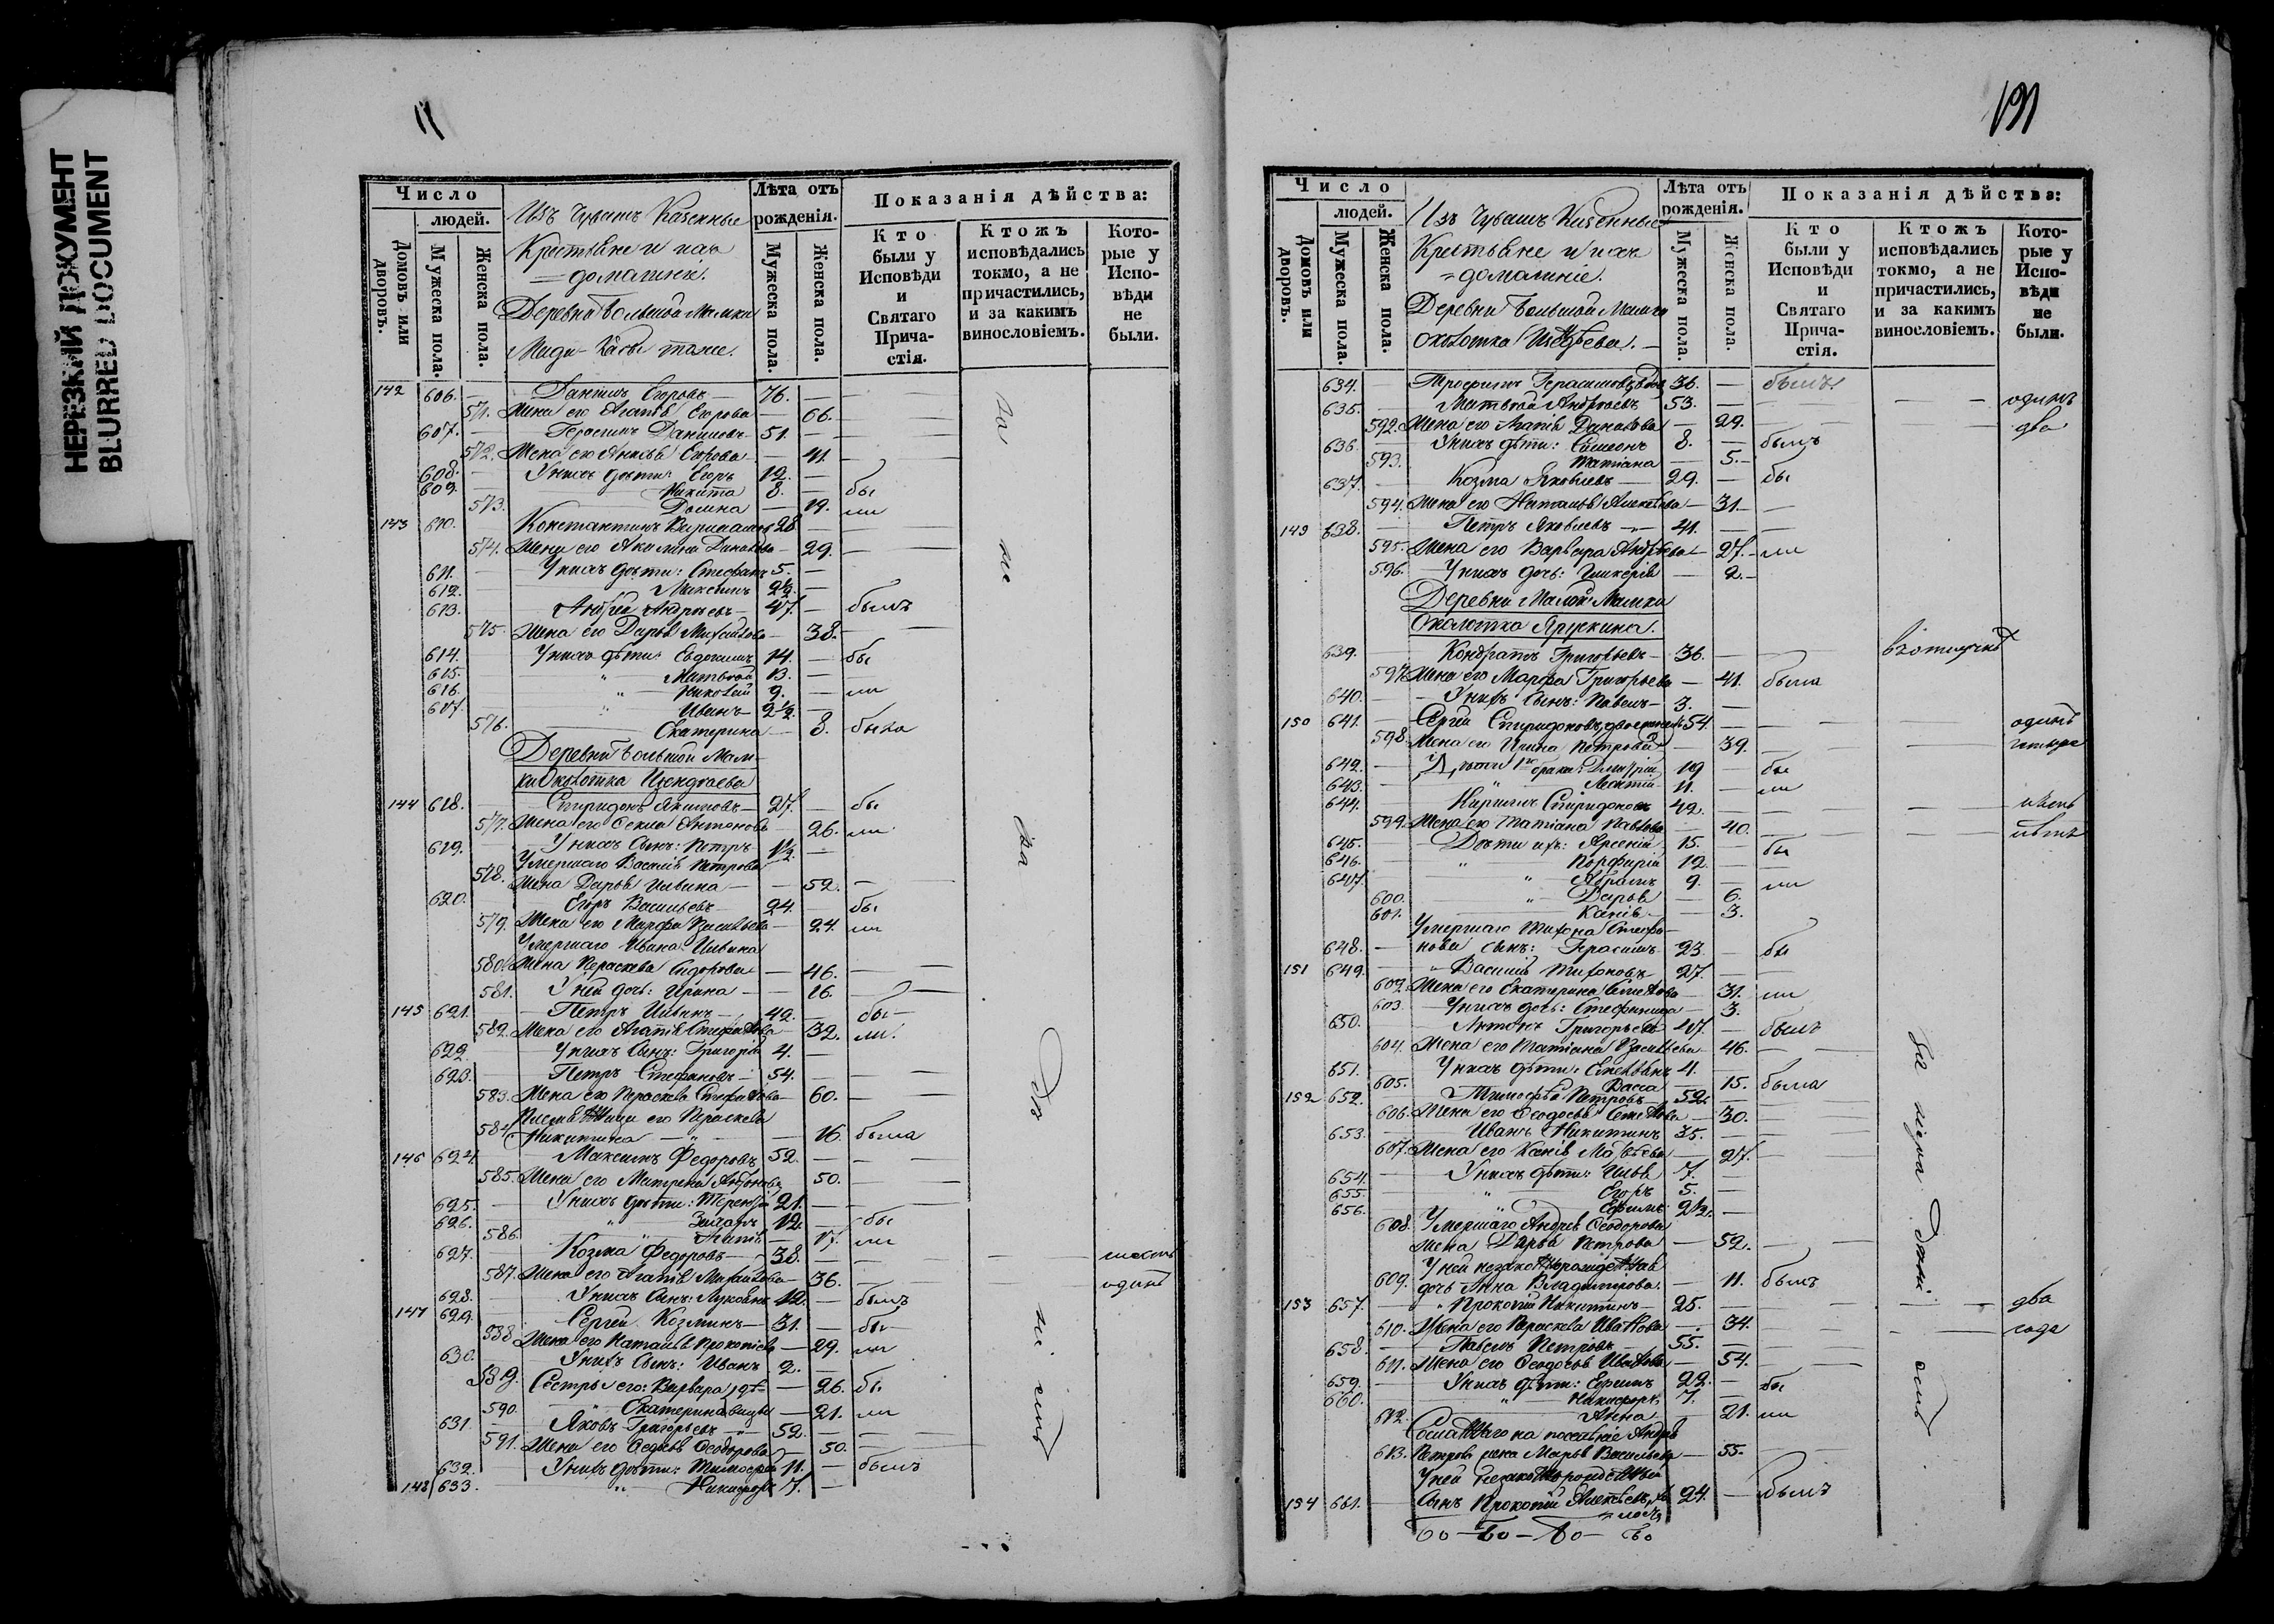 НЕРЕЗКИЙ ДОКУМЕНТ
BLURRED DOCUMENT
Число
людей.
Домовъ или дворовъ.
Мужеска пола.
Женска пола.
Изъ Чувашъ Казенные
Крестьяне и ихъ
домашніе.
Деревни Большой
тоже.
Лѣта отъ рожденія.
Мужеска пола.
Женска пола.
Показанія дѣйства:
Кто были у Исповѣди и Святаго Причастія.
Ктожъ исповѣдались токмо, а не причастились, и за какимъ винословіемъ.
Которые у Исповѣди не были.
142 606. Данилъ Егоровъ 76.
571. Жена его Агапія Егорова 66.
607. Герасимъ Даниловъ 51.
572. Жена его Анисья Егорова 41.
608. У нихъ дѣти: Егоръ 12.
609. Никита 8. бы
573. Домна 19. ли
143 610. Константинъ 28
574. Жена его Акилина 29.
611. У нихъ дѣти: Стефанъ 5.
612. Максимъ 2½.
613. Андрей Андреевъ 47. былъ
575. Жена его Дарья Михайлова 38.
614. У нихъ дѣти: Евдокимъ 14. бы
615. Матвей 13.
616. Николай 9. ли
617. Иванъ 2½.
576. Екатерина 8. была
Деревни Большой
Околотка
144 618. Спиридонъ Якимовъ 27. бы
577. Жена его Фекла Антонова 26. ли
619. У нихъ сынъ: Петръ 1½.
Умершаго Василія Петрова
578. Жена Дарья Ильина 52.
620. Егоръ Васильевъ 24. бы
579. Жена его Марфа Васильева 24. ли
Умершаго Ивана Ильина
580. Жена Параскева Сидорова 46.
581. У ней дочь: Ирина 16.
145 621. Петръ Ильинъ 42. бы
582. Жена его Агапія Стефанова 32. ли.
622. У нихъ сынъ: Григорій 4.
623. Петръ Стефановъ 54.
583. Жена его Параскева Стефанова 60.
Племянница его Параскева
584. Никитина 16. была
146 624. Максимъ Федоровъ 52.
585. Жена его Матрена Антонова 50.
625. У нихъ дѣти: Терентій 21.
626. Захаръ 12. бы
586. Агапія 17. ли
627. Козма Федоровъ 38. шесть
587. Жена его Агапія Михайлова 36. одинъ
628. У нихъ сынъ: Лукоянъ 12. былъ
147 629. Сергей Козминъ 31. бы
588 Жена его Наталья Прокопіева 29. ли
630. У нихъ сынъ: Иванъ 2.
589. Сестры его: Варвара 26. бы
590. Екатерина 21. ли
631. Яковъ Григорьевъ 52.
591. Жена его Федосья Феодорова 50.
632. У нихъ дѣти: Тимофей 11. былъ
148 633. Никифоръ 7.
131
Число
людей.
Домовъ или дворовъ.
Мужеска пола.
Женска пола.
Изъ Чувашъ Казенные
Крестьяне и ихъ
домашніе.
Деревни Большой
околотка
Лѣта отъ рожденія.
Мужеска пола.
Женска пола.
Показанія дѣйства:
Кто были у Исповѣди и Святаго Причастія.
Ктожъ исповѣдались токмо, а не причастились, и за какимъ винословіемъ.
Которые у Исповѣди не были.
634. Трофимъ Герасимовъ 36. былъ
635. Матвей Андреевъ 53. одинъ
592. Жена его Агапія 29. два
636. У нихъ дѣти: Симеонъ 8. былъ
593. Татіана 5.
637. Козма Яковлевъ 29. бы
594. Жена его Наталья Алексѣева 31.
149 638. Петръ Яковлевъ 41.
595. Жена его Варвара Андреева 27. ли
596. У нихъ дочь: Гликерія 2.
Деревни Малой
Околотка Ярускина.
639. Кондратъ Григорьевъ 36. въ отлучкѣ
597. Жена его Марфа Григорьева 41. была
640. У нихъ сынъ: Павелъ 3.
150 641. Сергій Спиридоновъ 54. одинъ
598. Жена его Ирина Петрова 39. четыре
642. Дѣти 1го брака: Димитрій 19 бы
643. Леонтій 11. ли
644. Кирилъ Спиридоновъ 42.
599. Жена его Татіана Павлова 40.
645. Дѣти ихъ: Арсеній 15. бы
646. Порфирій 12.
647. Абрамъ 9. ли
600. Дарья 6.
601. Ксенія 3.
Умершаго Тихона Стефа-
648. нова сынъ: Герасимъ 23 бы
151 649. Василій Тихоновъ 27.
602. Жена его Екатерина 31. ли
603. У нихъ дочь: Стефанида 3.
650. Антонъ Григорьевъ 47. былъ
604. Жена его Татіана Васильева 46.
651. У нихъ дѣти: 4.
605. Васса 15. была
152 652. Тимофей Петровъ 52.
606. Жена его Феодосья 30.
653. Иванъ Никитинъ 35.
607. Жена его Ксенія Матвѣева 27.
654. У нихъ дѣти: Илья 7.
655. Егоръ 5.
656. Ефимъ 2½.
608. Умершаго Андрея Феодорова
жена Дарья Петрова 52.
У ней незаконнорожденная
609. дочь Анна Владимірова. 11. былъ
153 657. Прокопій Никитинъ 25. два
610. Жена его Параскева Иванова 34. года
658. Павелъ Петровъ 55.
611. Жена его Феодосья Иванова 54.
659. У нихъ дѣти: Ефимъ 22. бы
660. Никифоръ 7.
612. Анна 21. ли
Сосланнаго на поселеніе Андрея
613. Петрова жена Марья Васильева 55.
У ней незаконнорожденный
154 661. сынъ Прокопій Алексѣевъ 24. былъ